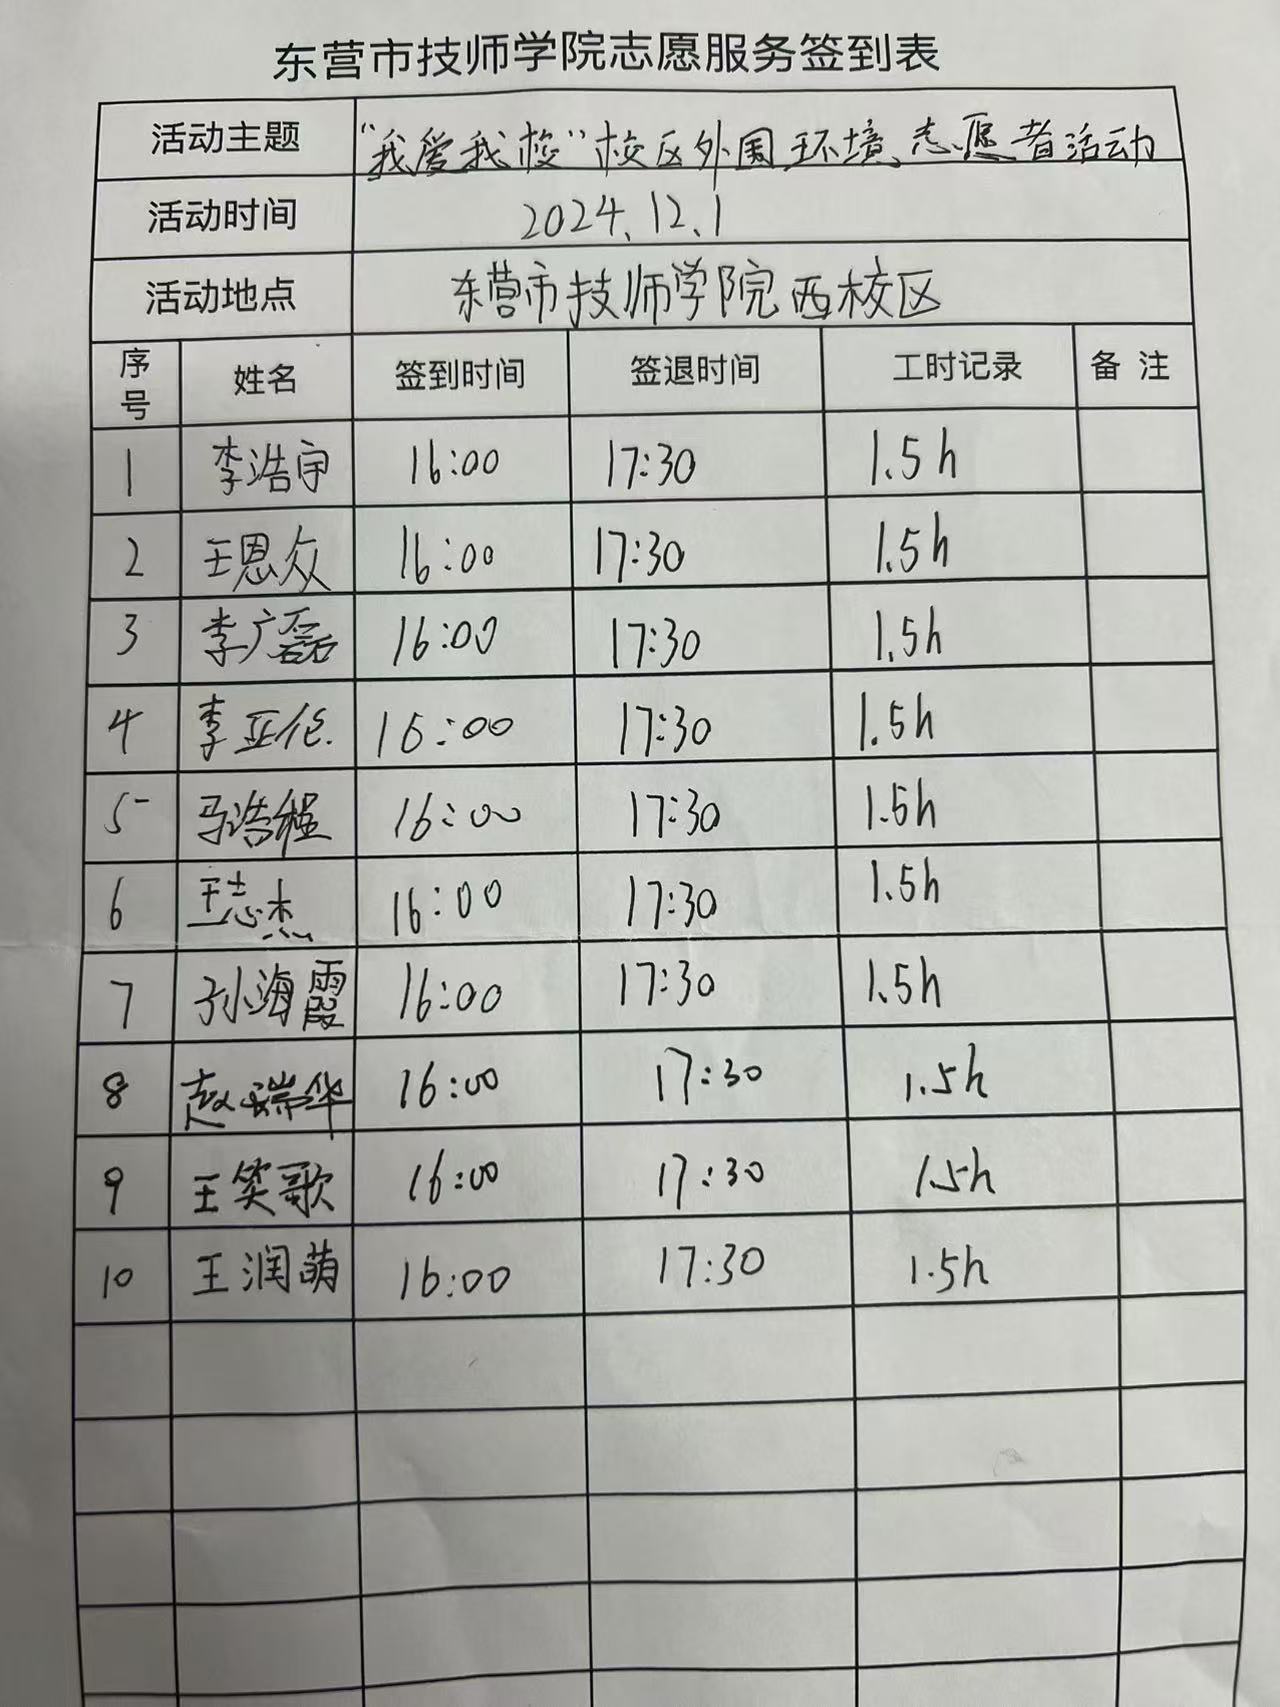 东营市技师学院志愿服务签到表
活动主题 “我爱我校”校区外围环境志愿者活动
活动时间 2024.12.1
活动地点 东营市技师学院西校区
序号 姓名 签到时间 签退时间 工时记录 备注
1 李浩宇 16:00 17:30 1.5h
2 王恩众 16:00 17:30 1.5h
3 李广磊 16:00 17:30 1.5h
4 李亚伦 16:00 17:30 1.5h
5 马浩程 16:00 17:30 1.5h
6 王志杰 16:00 17:30 1.5h
7 孙海霞 16:00 17:30 1.5h
8 赵瑞华 16:00 17:30 1.5h
9 王笑歌 16:00 17:30 1.5h
10 王润萌 16:00 17:30 1.5h